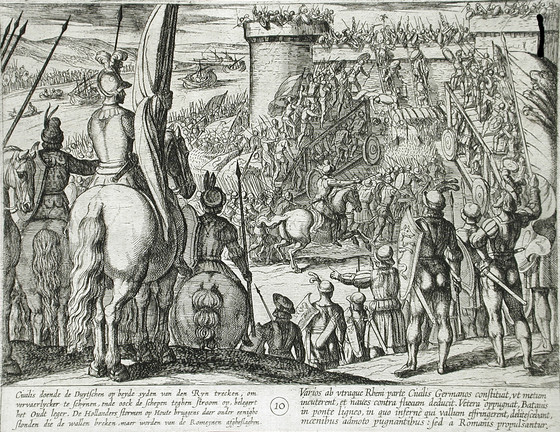 Civilis doende de Duytschen op beyde syden van den Ryn trecken, om
vervaerlycker te schynen, ende oock de schepen teghen stroom op, belegert
het Oudt leger. De Hollanders stormen op Houte bruggens daer onder eenighe
stonden die de wallen breken, maer werden van de Romeynen afgheslagen.
10
Varios ab utraque Rheni parte Civilis Germanos constituit, ut metum
incuterent, et naves contra fluvium deducit. Vetera oppugnat, Batavis
in ponte ligneo, in quo infernè qui vallum effringerent, delitescebant,
mœnibus admoto pugnantibus: sed a Romanis propulsantur.